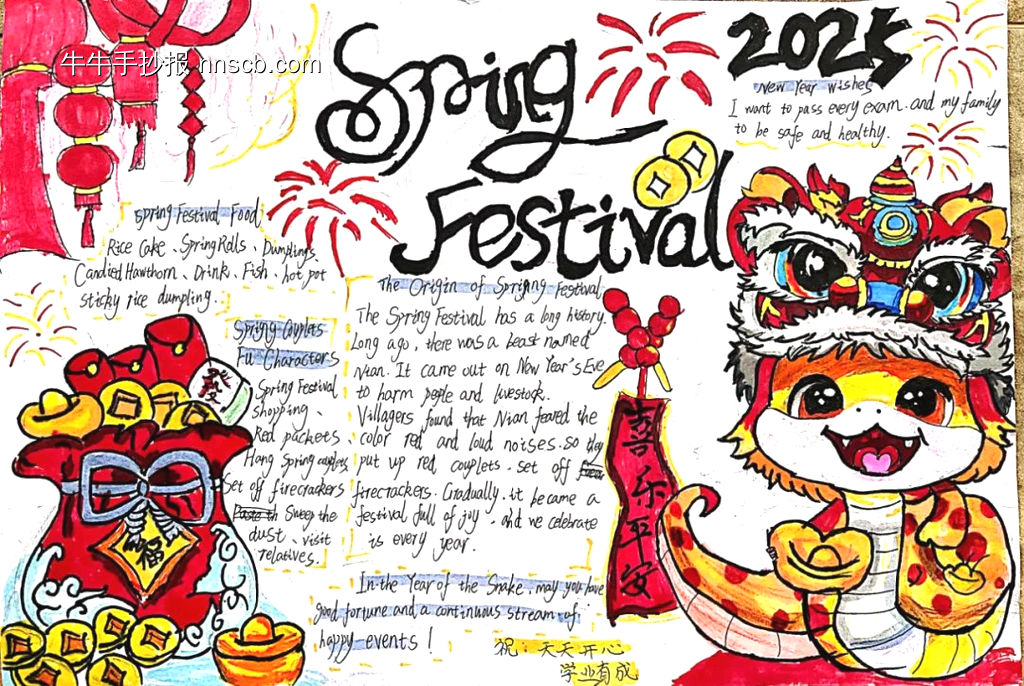 牛牛手抄报 nnscb.com
Spring
Festival
2025
New Year wishes
I want to pass every exam. and my family
to be safe and healthy.
Spring Festival Food
Rice Cake、Spring Rolls、Dumplings
Candied Hawthorn、Drink、Fish、hot pot
sticky rice dumpling.
Spring Couplets
Fu Characters
Spring Festival
shopping、
Red packets、
Hang Spring couplets
Set off firecrackers
Sweep the
dust、visit
relatives.
The Origin of Spripng Festival
The Spring Festival has a long history.
Long ago, there was a beast named
Nian. It came out on New Year's Eve
to harm people and livestock.
Villagers found that Nian feared the
color red and loud noises. so they
put up red couplets. set off
firecrackers. Gradually. it became a
festival full of joy. and we celebrate
is every year.
In the Year of the Snake, may you have
good fortune and a continuous stream of
happy events!
祝:天天开心
学业有成
喜乐平安
福